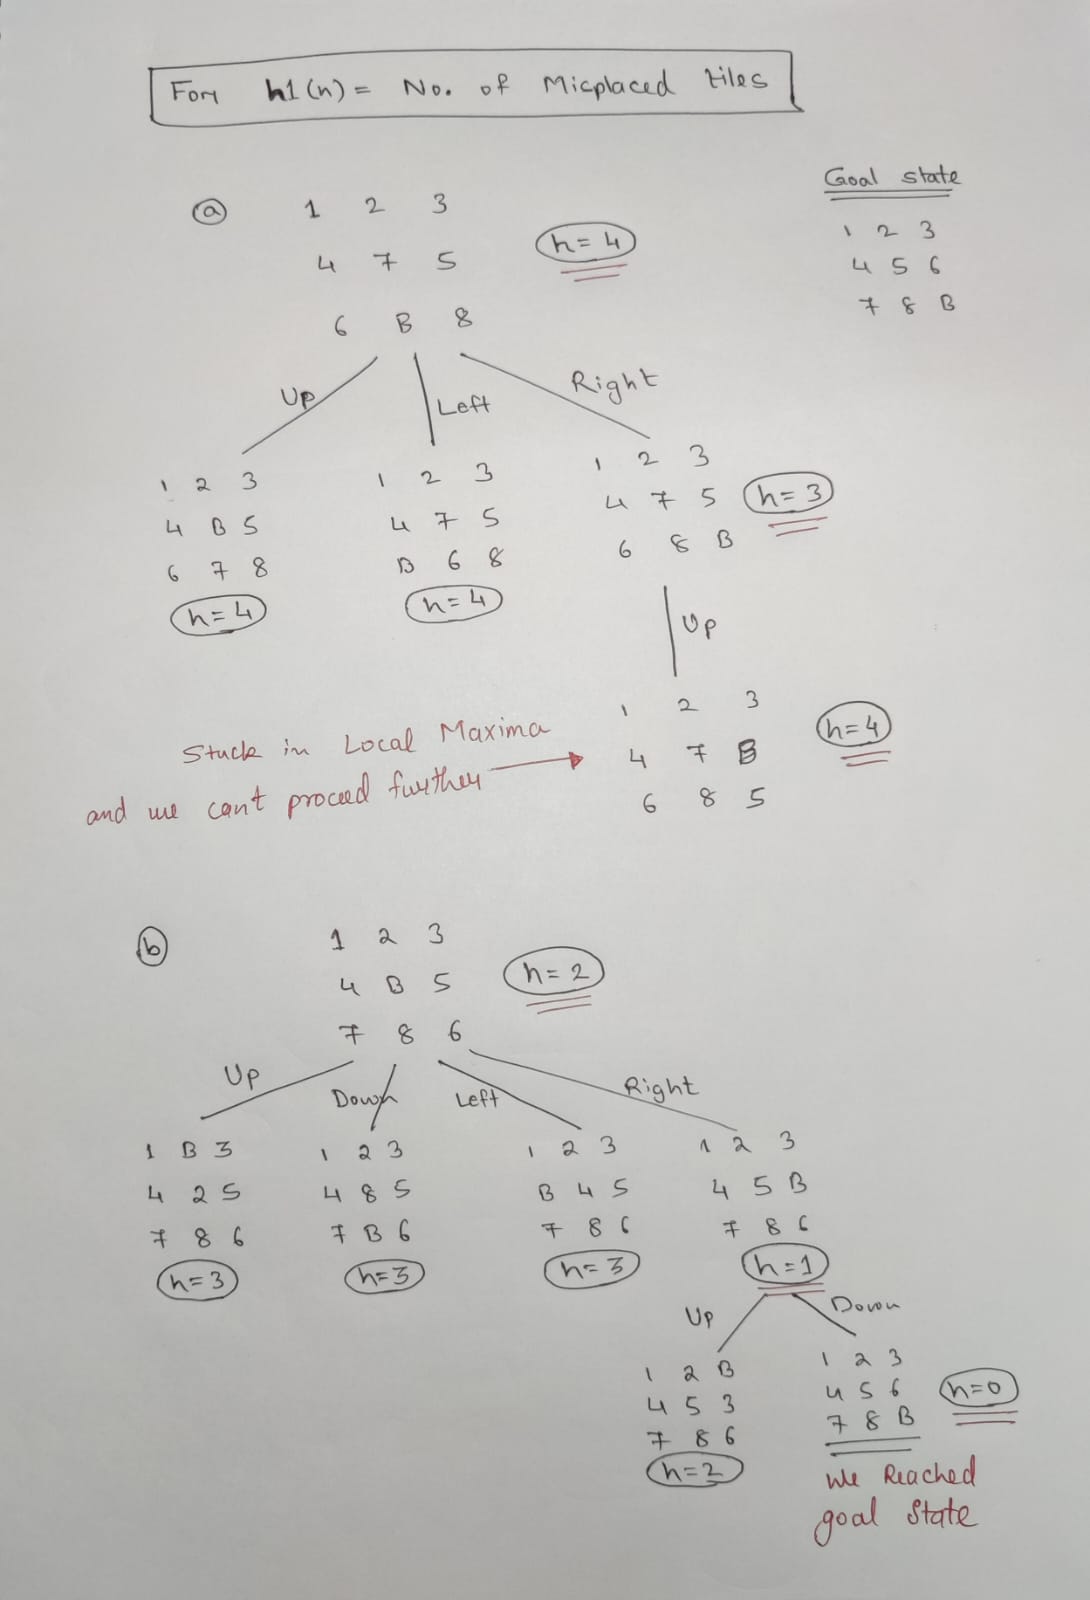 For h1(n) = No. of Misplaced tiles
Goal state
1 2 3
4 5 6
7 8 B
(a)
1 2 3
4 7 5
6 B 8
h=4
Up
Left
Right
1 2 3
4 B 5
6 7 8
h=4
1 2 3
4 7 5
B 6 8
h=4
1 2 3
4 7 5
6 8 B
h=3
Up
1 2 3
4 7 B
6 8 5
h=4
Stuck in Local Maxima
and we can't proceed further
(b)
1 2 3
4 B 5
7 8 6
h=2
Up
Down
Left
Right
1 B 3
4 2 5
7 8 6
h=3
1 2 3
4 8 5
7 B 6
h=3
1 2 3
B 4 5
7 8 6
h=3
1 2 3
4 5 B
7 8 6
h=1
Up
Down
1 2 B
4 5 3
7 8 6
h=2
1 2 3
4 5 6
7 8 B
h=0
We Reached
goal state